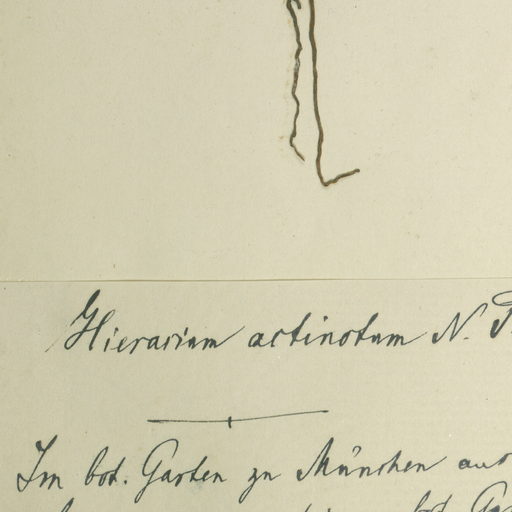 Hieracium actinotum N. P.
Im bot. Garten zu München aus
bot. Ga